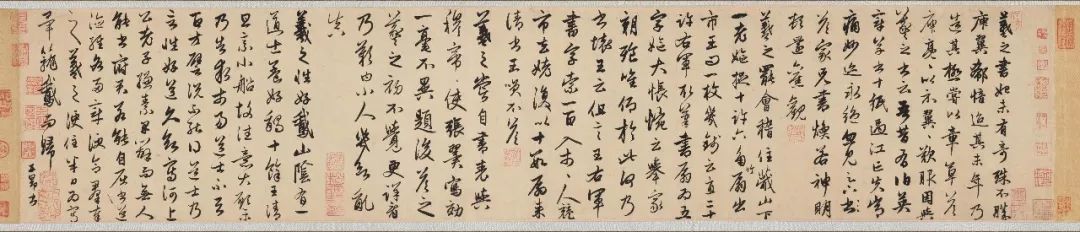 羲之書初未有奇殊不勝
庾翼郗愔迨其末年乃
造其極嘗以章草答
庾亮亮以示翼翼歎服因與
羲之書云吾昔有伯英
章草書十紙過江亡失常
痛妙迹永絕忽見足下
答家兄書煥若神明
頓還舊觀
羲之罷會稽住蕺山下
一老嫗捉十許六角竹扇出
市王聊問一枚幾錢云直二十
許右軍取筆書扇扇為五
字嫗大悵惋云舉家
朝飡唯仰於此何乃
書壞王云但言王右軍
書字索一百入市市人競
市去姥復以十數扇來
請書王笑不答
羲之嘗自書表與
穆帝帝使張翼寫效
一毫不異題後答之
羲之初不覺更詳看
乃歎曰小人幾欲亂
真
羲之性好鵝山陰有一
道士養好鵝十餘王清
旦乘小船故往意大願樂
乃告求市易道士不與
百方譬說不能得道士乃
言性好道久欲寫河上
公老子縑素早辦而無人
能書府君若能自屈書道
德經各兩章便合羣以奉
之羲之便住半日為寫
畢籠鵝而歸 子昂書